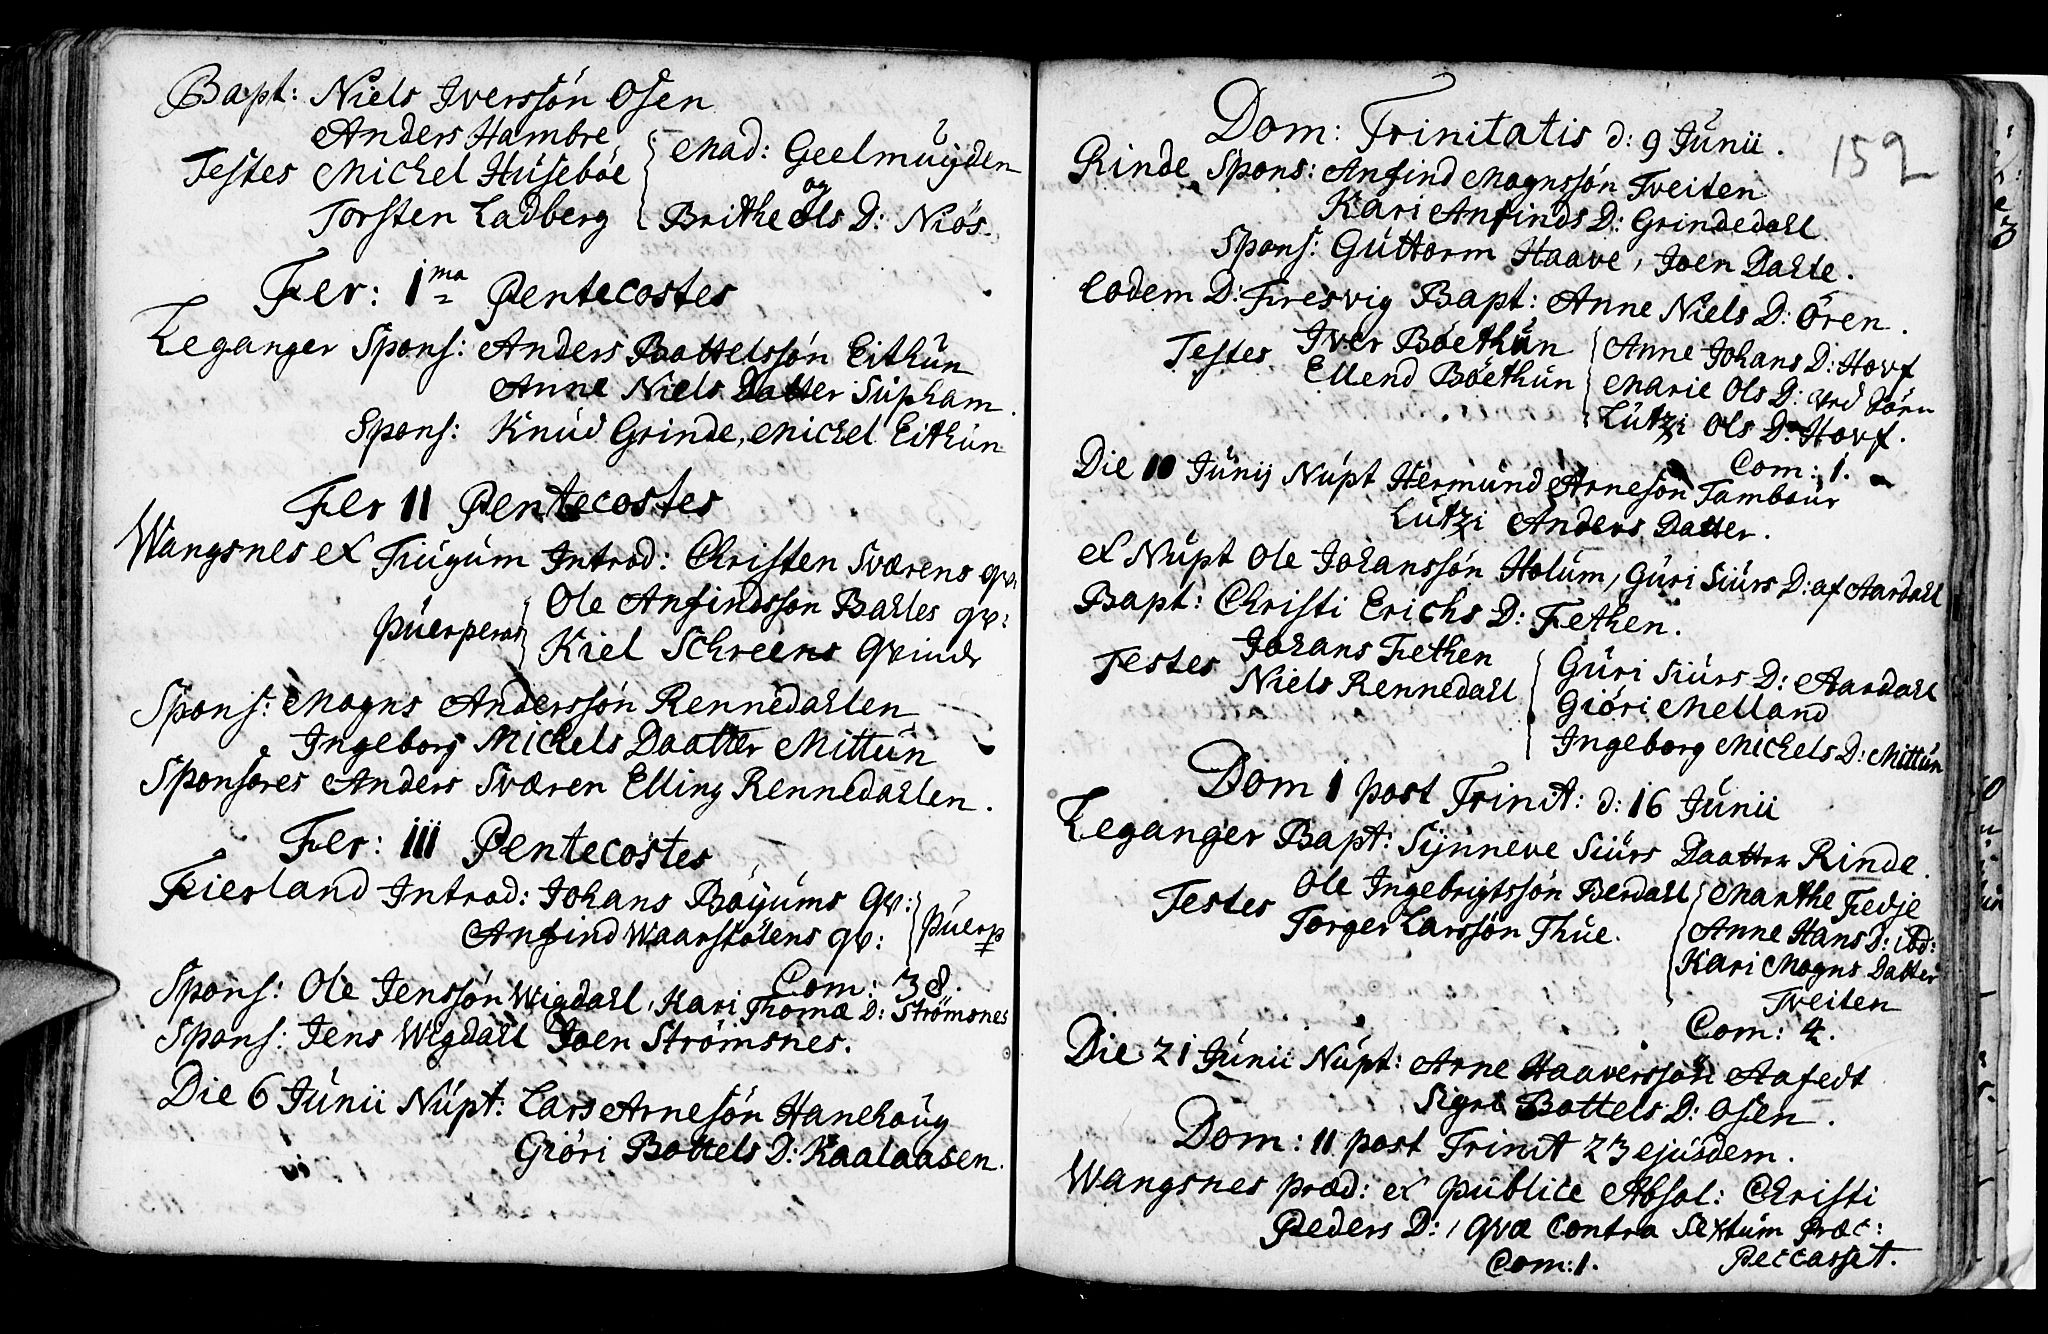 Bapt: Niels Iverssön Osen
Anders Hambre
Testes Michel Husebøe
Torsten Ladberg
Mad: Geelmuyden
og
Brithe Ols D: Niös.
Fer: 1ma Pentecostes
Leganger Spons: Anders Bottelssön Eithun
Anne Niels Datter Supham.
Spons: Knud Grinde, Michel Eithun
Fer 11 Pentecostes
Wangsnes et Tiugum Introd: Christen Sværens qv:
puerperas Ole Anfindsson Bahles qv:
Kiel Schreens Qvinde
Spons: Mogns Anderssön Rennedahlen
Ingeborg Michels Daatter Mittun
Sponsores Anders Sværen Elling Rennedahlen.
Fer: iii Pentecostes
Fierland Introd: Johans Böyums Qv:
Anfind Waarstölens qv: puerp
Com: 38.
Spons: Ole Jenssön Wigdahl, Kari Thomæ D: Strömsnes
Spons: Jens Wigdahl Joen Strömsnes.
Die 6 Junii Nupt: Lars Arnesön Hanehoug
Giöri Bottels D: Kaalaasen.
152
Dom: Trinitatis d: 9 Junii.
Rinde Spons: Anfind Mognssön Tveiten
Kari Anfinds D: Grindedahl
Spons: Guttorm Haave, Joen Dahle.
Eodem D: Fresvig Bapt: Anne Niels D: Ören.
Testes Iver Böethun
Ellend Böethun
Anne Johans D: Hovf
Marie Ols D: Ytrd
Lutzi Ols D: Hovf.
Com: 1.
Die 10 Junij Nupt Hermund Arnesön Tambour
Lutzi Anders Datter.
et Nupt Ole Johanssön Holum, Guri Siurs D: af Aardahl
Bapt: Christi Erichs D: Fethen.
Testes Johans Fethen
Niels Rennedahl
Guri Siurs D: Aardahl
Giöri Melland
Ingeborg Michels D: Mittun
Dom 1 post Trinit: d: 16 Junii
Leganger Bapt: Synneve Siurs Daatter Rinde.
Testes Ole Ingebrigtssön Berdahl
Torger Larssön Thue.
Marthe Fedje
Anne Hans D: ibd:
Kari Mogns Datter
Tveiten
Com: 4.
Die 21 Junii Nupt: Arne Haaverssön Aafedt
Sigri Bottels D: Osen.
Dom: 11 post Trinit 23 ejusdem.
Wangsnes præd: et publice Absol: Christi
Peders D:, qvæ contra sextum præc:
Peccasset.
Com: 1.